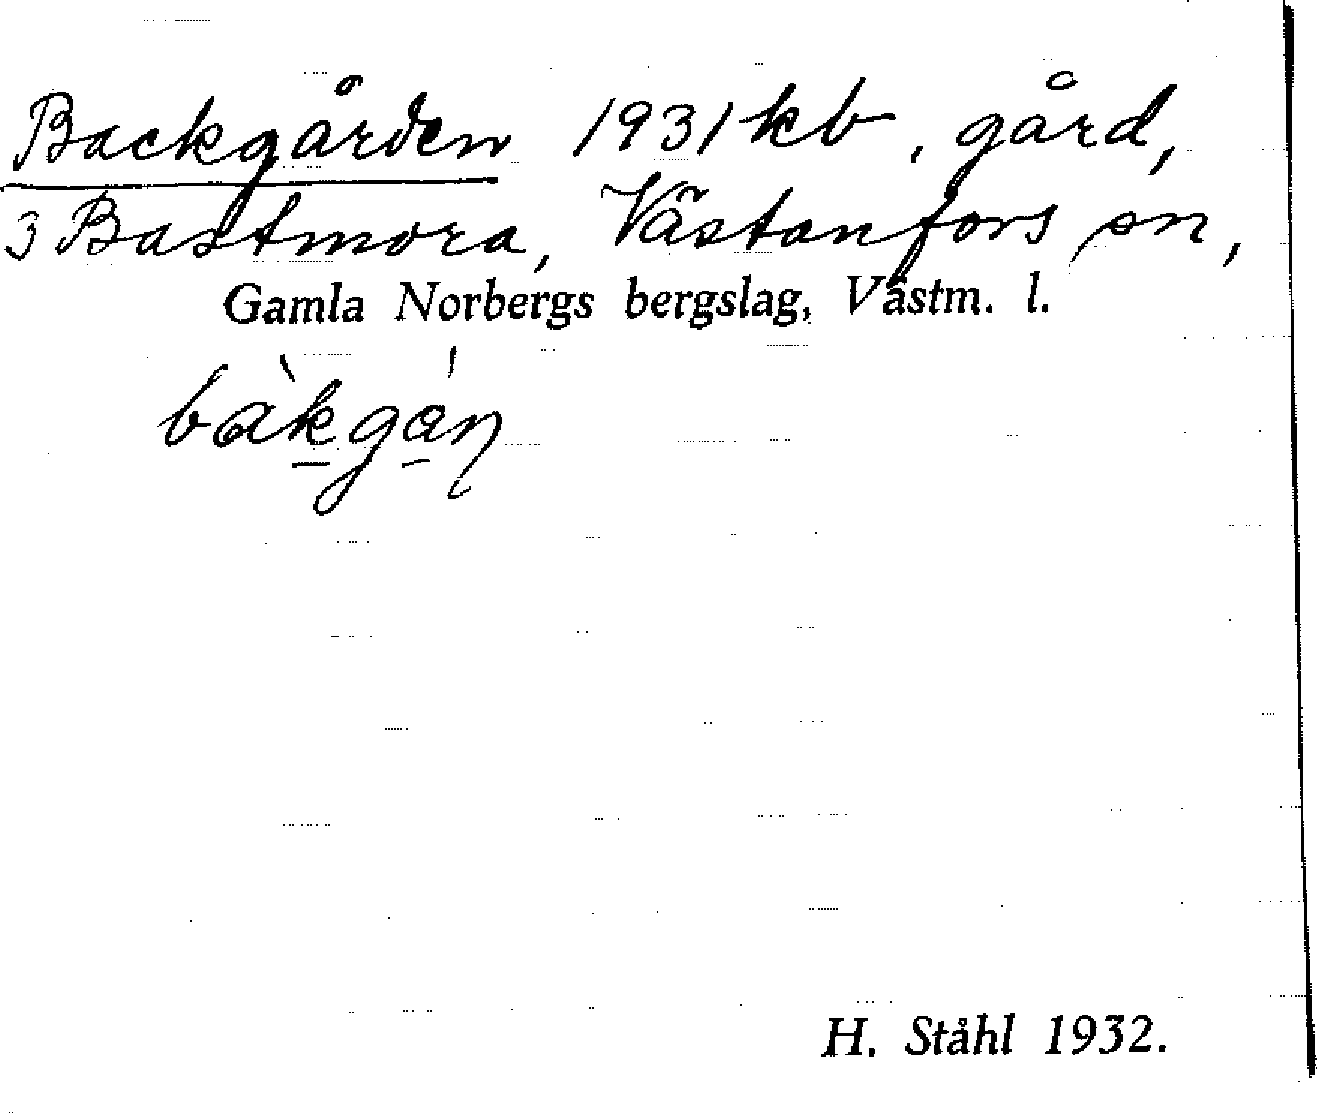 Backgården 1931 kb, gård,
3 Bastmora, Västanfors sn,
Gamla Norbergs bergslag, Västm. l.
bàkgán
H. Ståhl 1932.